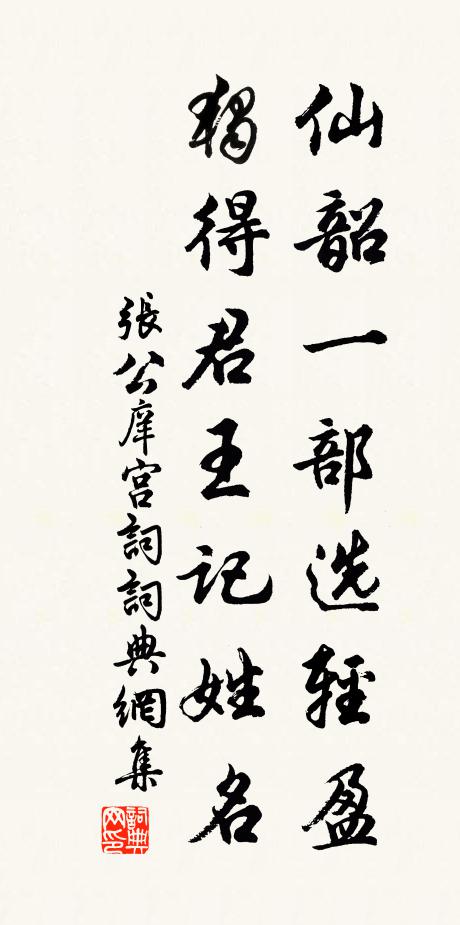 仙韶一部选輕盈
獨得君王記姓名
張公庠宫詞詞典網集
詞典網印